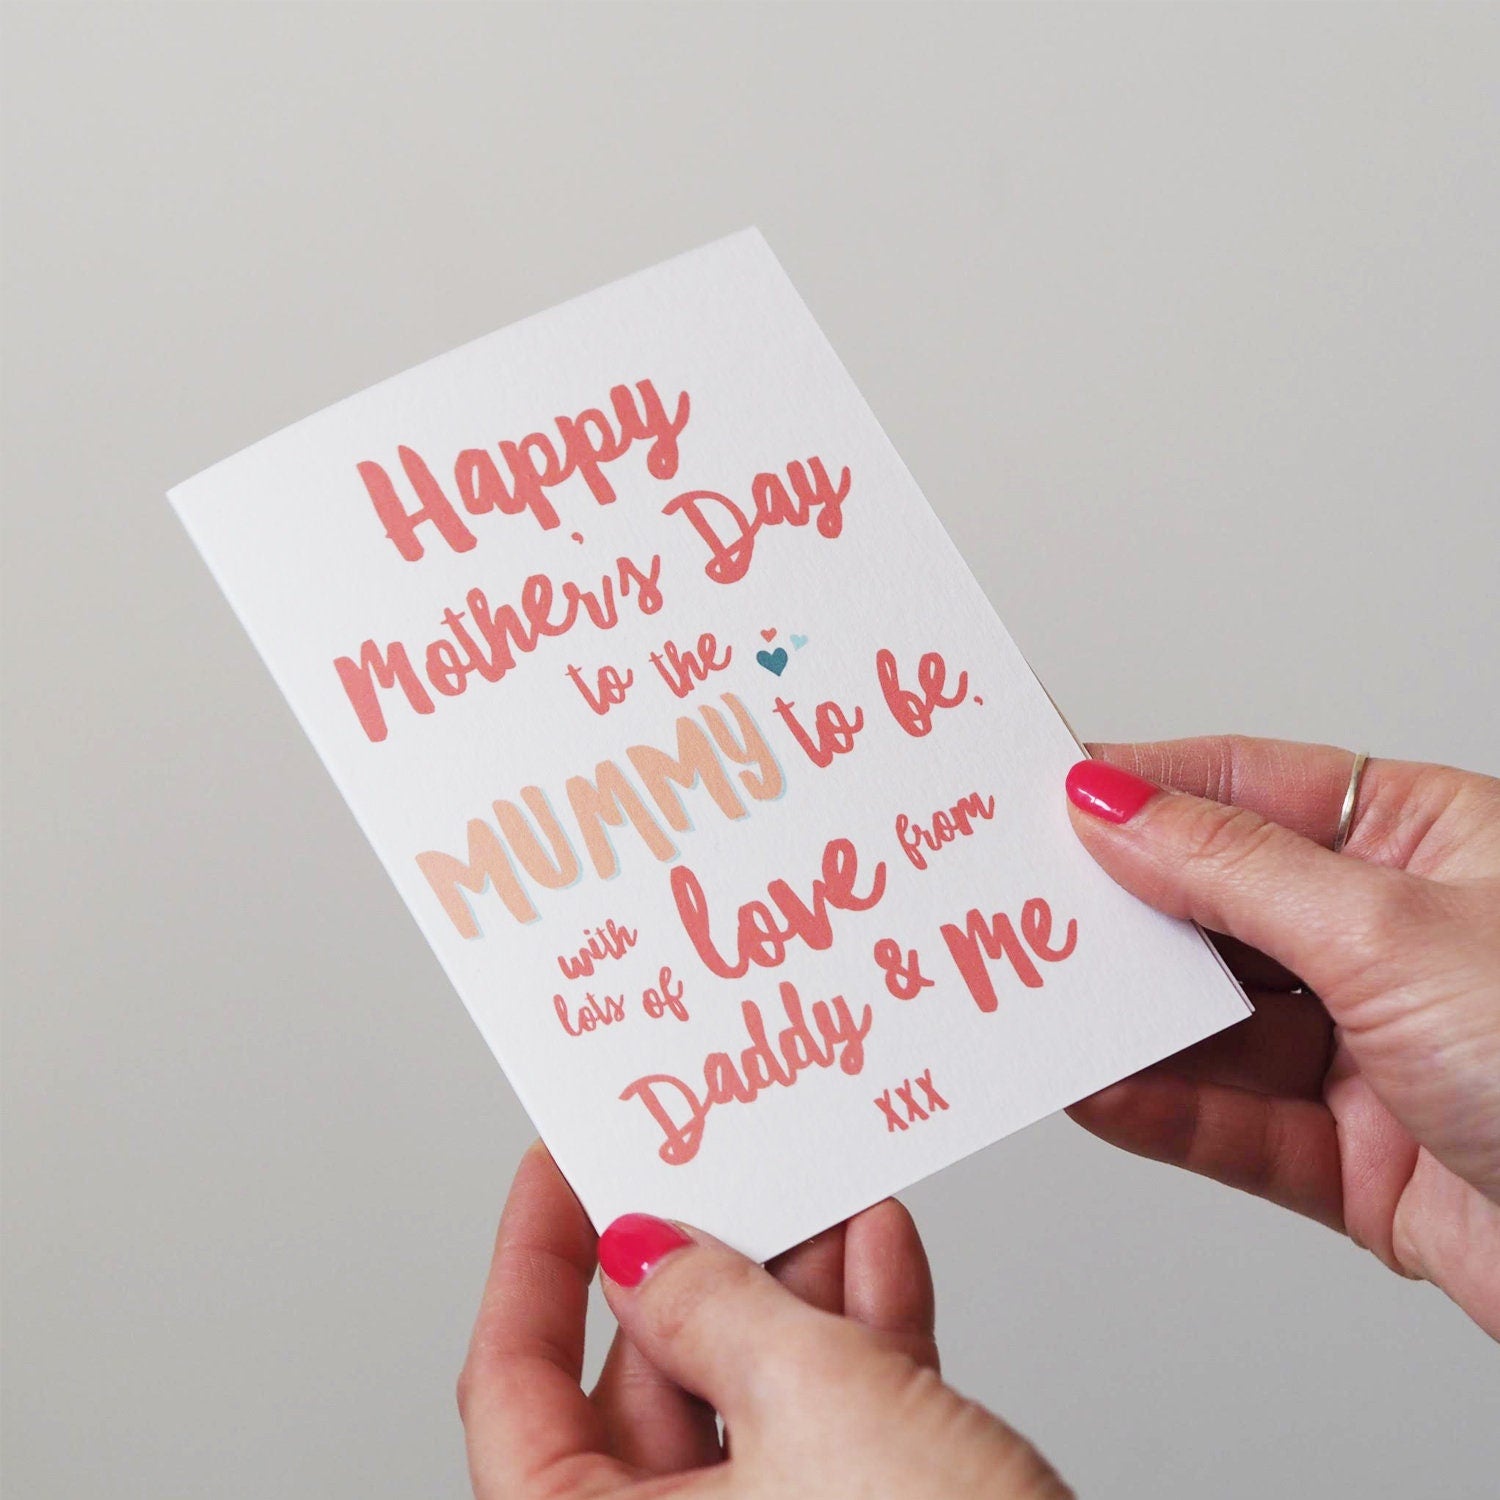 Happy
Mother's Day
to the
MUMMY to be,
with
lots of love from
Daddy & Me
xxx